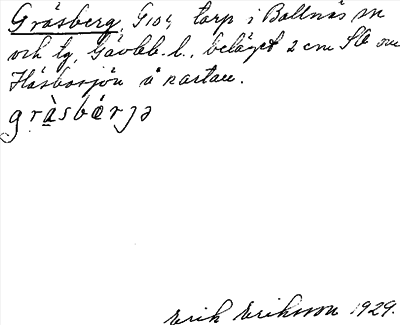 Gräsberg, G10c, torp i Bollnäs sn
och tg, Gävleb. l., beläget 2 cm SO om
Häsbosjön å kartan.
gràsbárja
Erik Eriksson 1929.